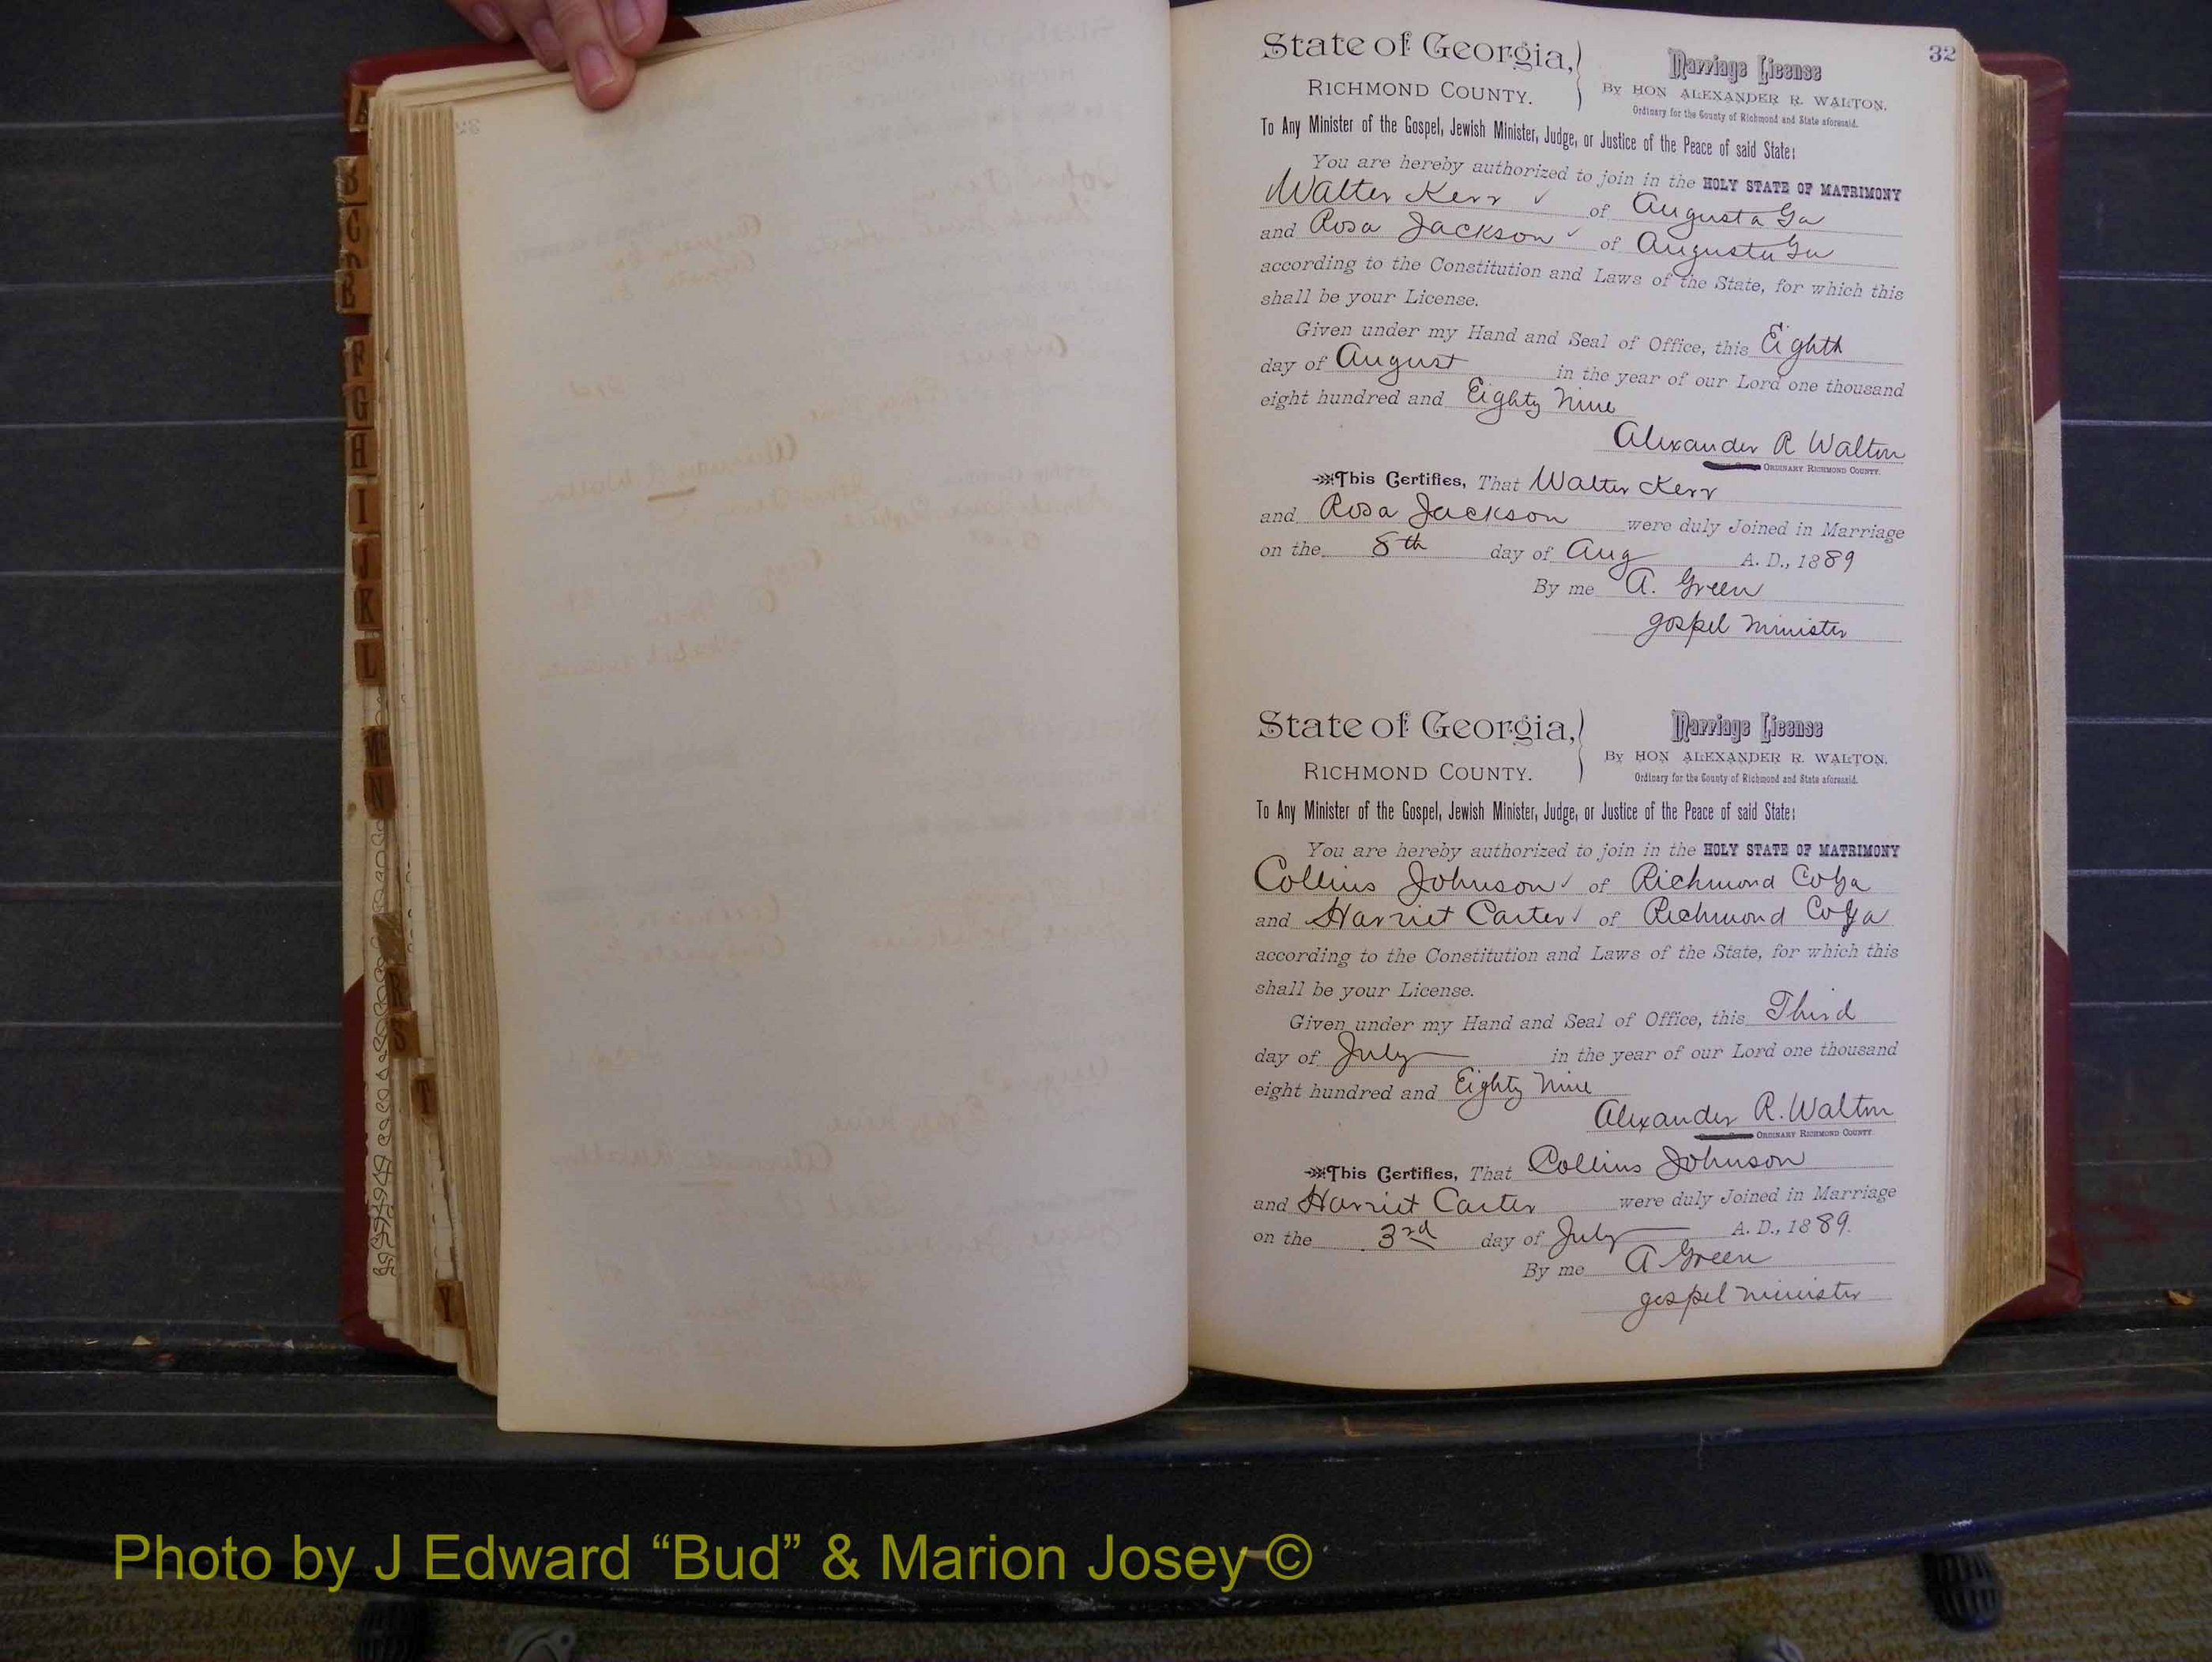 32
State of Georgia,
RICHMOND COUNTY.
Marriage License
By HON ALEXANDER R. WALTON,
Ordinary for the County of Richmond and State aforesaid.
To Any Minister of the Gospel, Jewish Minister, Judge, or Justice of the Peace of said State:
You are hereby authorized to join in the HOLY STATE OF MATRIMONY
Walter Kerr ✓ of Augusta Ga
and Rosa Jackson ✓ of Augusta Ga
according to the Constitution and Laws of the State, for which this
shall be your License.
Given under my Hand and Seal of Office, this Eighth
day of August in the year of our Lord one thousand
eight hundred and Eighty Nine
Alexander R Walton
ORDINARY RICHMOND COUNTY.
This Certifies, That Walter Kerr
and Rosa Jackson were duly Joined in Marriage
on the 8th day of Aug A. D., 1889
By me A. Green
gospel minister
State of Georgia,
RICHMOND COUNTY.
Marriage License
By HON ALEXANDER R. WALTON,
Ordinary for the County of Richmond and State aforesaid.
To Any Minister of the Gospel, Jewish Minister, Judge, or Justice of the Peace of said State:
You are hereby authorized to join in the HOLY STATE OF MATRIMONY
Collins Johnson ✓ of Richmond Co Ga
and Harriet Carter ✓ of Richmond Co Ga
according to the Constitution and Laws of the State, for which this
shall be your License.
Given under my Hand and Seal of Office, this Third
day of July in the year of our Lord one thousand
eight hundred and Eighty Nine
Alexander R. Walton
ORDINARY RICHMOND COUNTY.
This Certifies, That Collins Johnson
and Harriet Carter were duly Joined in Marriage
on the 3rd day of July A. D., 1889.
By me A Green
gospel minister
A
B
C
E
F
G
H
I
J
K
L
N
S
T
Y
Photo by J Edward “Bud” & Marion Josey ©